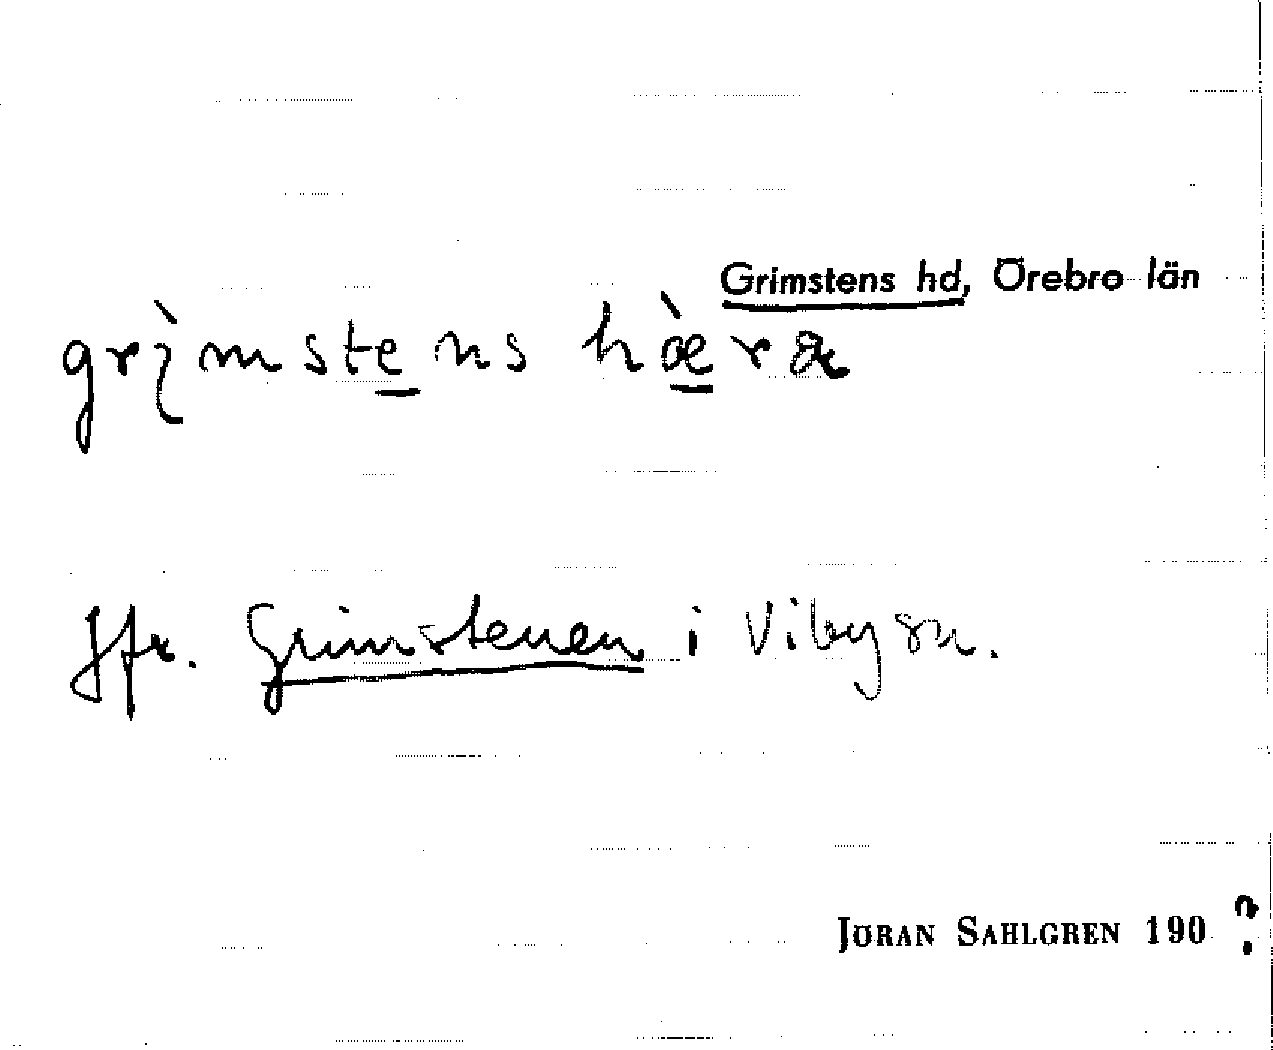 Grimstens hd, Örebro län
grìmstens hæ̀ra
Jfr. Grimstenen i Viby sn.
JÖRAN SAHLGREN 190?